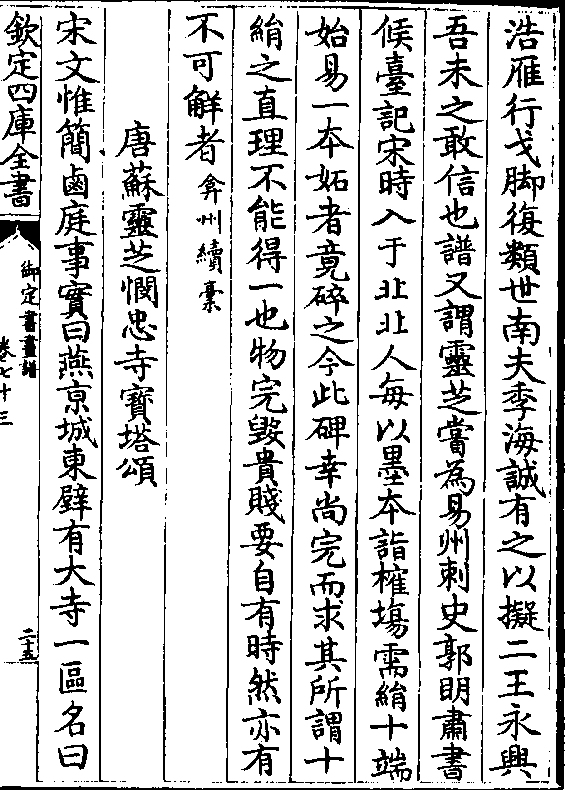 浩雁行戈脚復類世南夫季海誠有之以擬二王永興
吾未之敢信也譜又謂靈芝嘗為易州刺史郭明肅書
候臺記宋時入于北北人毎以墨本詣榷塲需絹十端
始易一本妬者竟碎之今此碑幸尚完而求其所謂十
絹之直理不能得一也物完毀貴賤要自有時然亦有
不可解者弇州續稾
唐蘇靈芝憫忠寺寶塔頌
宋文惟簡鹵庭事實曰燕京城東壁有大寺一區名曰
欽定四庫全書
御定書畫譜
卷七十三
二十五